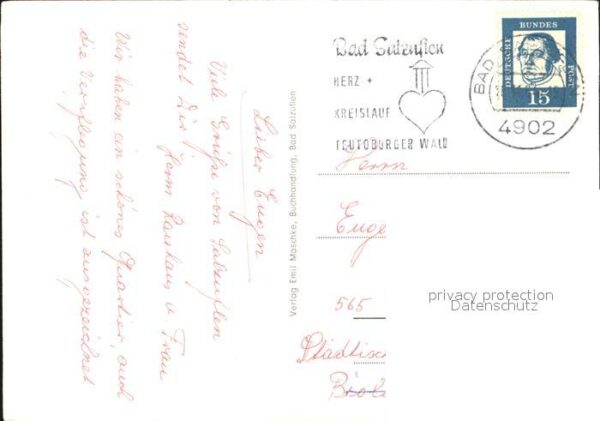 Lieber Eugen
Viele Grüße von Salzuflen
sendet Dir Herm. u Frau
Wir haben ein schönes Quartier, auch
die Verpflegung ist ausgezeichnet
Verlag Emil Maschke, Buchhandlung, Bad Salzuflen
Bad Salzuflen
HERZ +
KREISLAUF
TEUTOBURGER WALD
BAD
4902
DEUTSCHE BUNDESPOST
15
Herrn
Euge
565
Städtisc
privacy protection
Datenschutz